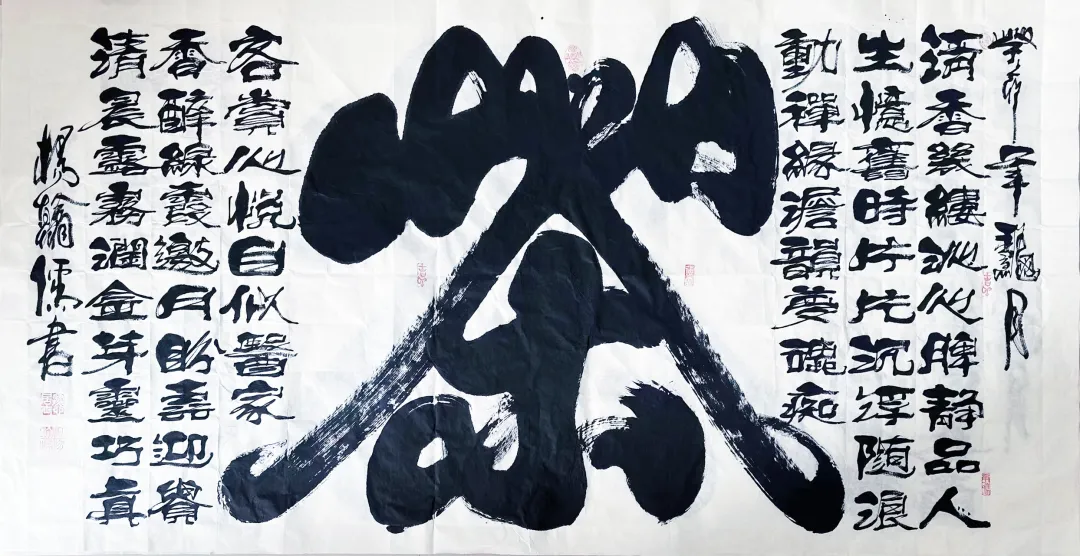 癸卯年龝月
清香裊縷沁心脾静品人
生憶舊時片片沉浮隨浪
動禪緣澹韻夢痴
茶
清晨露霧潤金芽靈巧真
香醉緑霞邀月盼壽迎賓
客賞心悦自似醫家
楊翰儒書